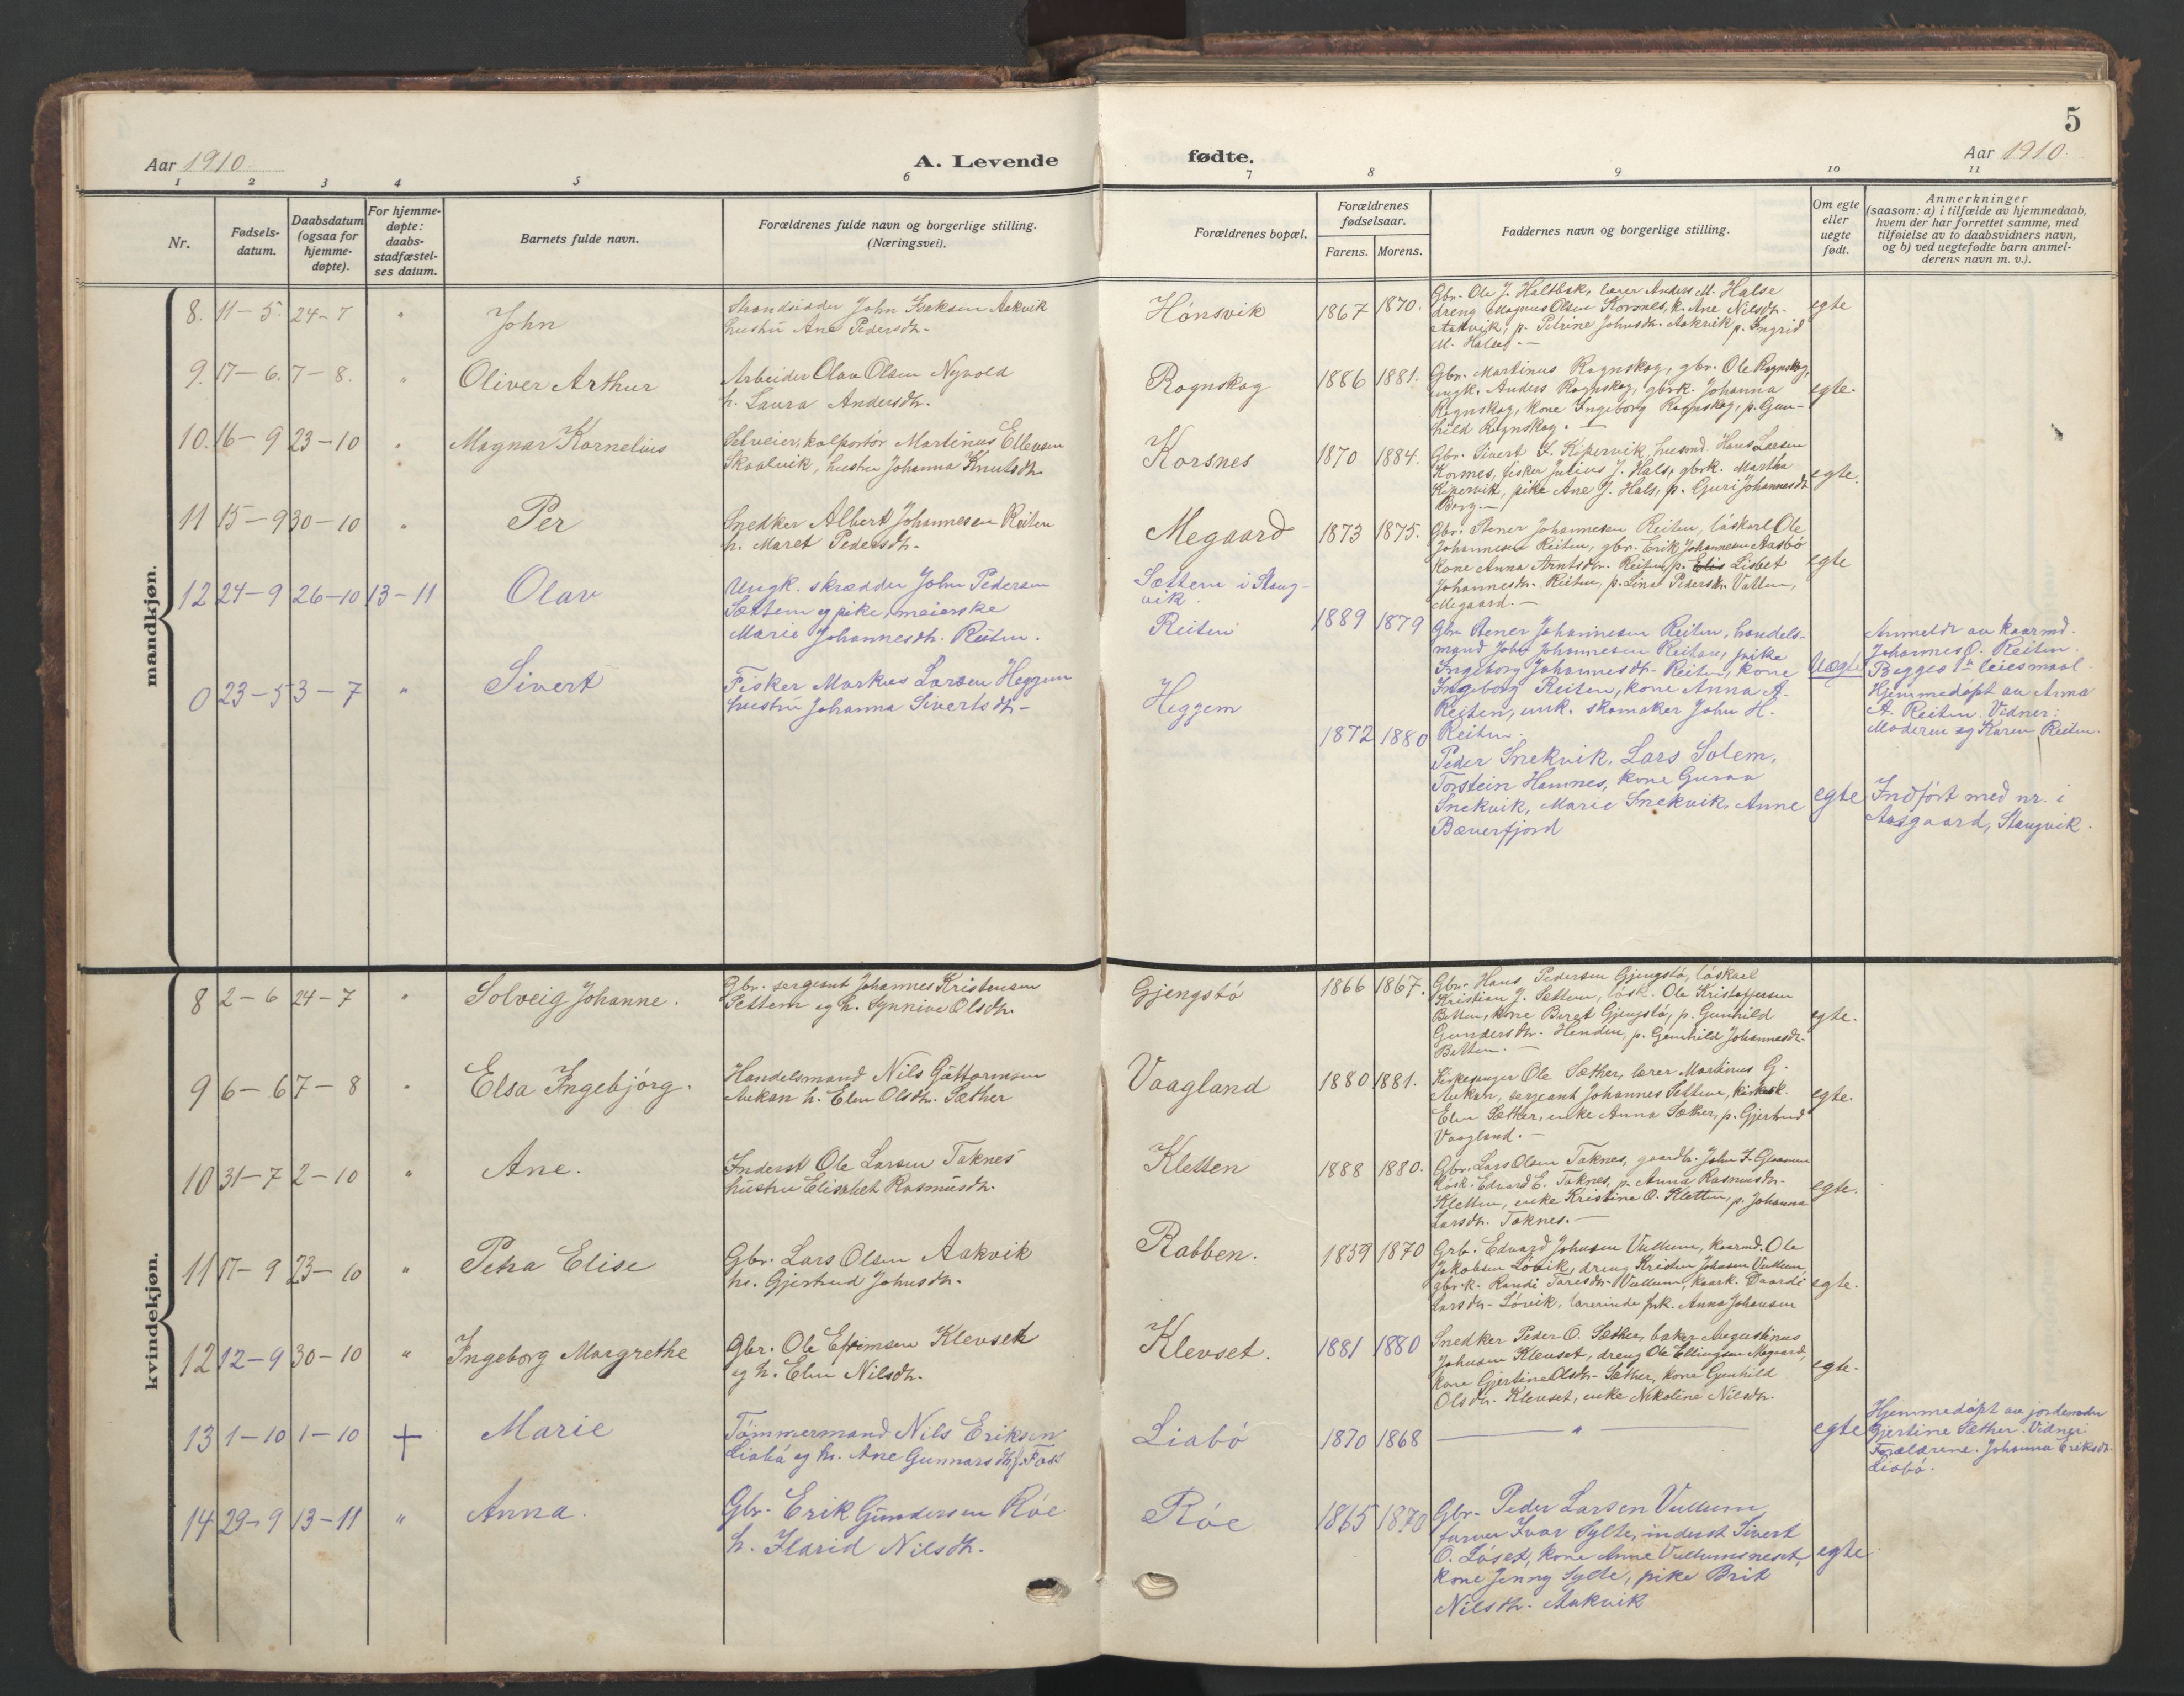 5
Aar 1910.
A. Levende
fødte.
Aar 1910.
1 2 3 4 5 6 7 8 9 10 11
Nr.
Fødsels-
datum.
Daabsdatum
(ogsaa for
hjemme-
døpte).
For hjemme-
døpte:
daabs-
stadfæstel-
ses datum.
Barnets fulde navn.
Forældrenes fulde navn og borgerlige stilling.
(Næringsvei).
Forældrenes bopæl.
Forældrenes
fødselsaar.
Farens. Morens.
Faddernes navn og borgerlige stilling.
Om egte
eller
uegte
født.
Anmerkninger
(saasom: a) i tilfælde av hjemmedaab,
hvem der har forrettet samme, med
tilføielse av to daabsvidners navn,
og b) ved uegtefødte barn anmel-
derens navn m. v.).
mandkjøn.
8. 11-5. 24-7 " John
Strandsidder John Isaksen Aakvik
hustru Ane Pedersdtr.
Hønsvik 1867 1870.
Gbr. Ole J. Haltbak, lærer Anders M. Halse
dreng Magnus Olsen Korsnes, k. Ane Nilsdtr.
Aakvik, p. Petrine Johnsdtr. Aakvik p. Ingrid
M. Halse. -
egte
9. 17-6. 7-8. " Oliver Arthur
Arbeider Olav Olsen Nyvold
h. Laura Andersdtr.
Rognskog 1886 1881.
Gbr. Martinus Rognskog, gbr. Ole Rognskog,
ungk. Anders Rognskog, gbrk. Johanna
Rognskog, kone Ingeborg Rognskog, p. Gun-
hild Rognskog. -
egte.
10. 16-9 23-10 " Magnar Kornelius
Selveier, kolportør Martinus Ellevsen
Skaalvik, hustru Johanna Knutsdtr.
Korsnes 1870 1884.
Gbr. Sivert L. Kipervik, husmd. Hans Larsen
Korsnes, fisker Julius J. Hals, gbrk. Martha
Kipervik, pike Ane J. Hals, p. Guri Johannesdtr.
Borg. -
egte.
11 15-9 30-10 " Per
Snedker Albert Johannesen Reiten
h. Maret Pedersdtr.
Megaard 1873 1875.
Gbr. Aener Johannesen Reiten, løskarl Ole
Johannesen Reiten, gbr. Erik Johannesen Aasbø
kone Anna Arntsdtr. Reiten, p. Elis Lisbet
Johannesdtr. Reiten, p. Lina Pedersdtr. Vatten,
Megaard. -
egte
12 24-9 26-10 13-11 Olav
Ungk. skrædder John Pedersen
Sættem og pike, meierske
Marie Johannesdtr. Reiten.
Sættem i Stang-
vik.
Reiten
1889 1879
Gbr. Aener Johannesen Reiten, handels-
mand John Johannesen Reiten, pike
Ingeborg Johannesdtr. Reiten, kone
Ingeborg Reiten, kone Anna A.
Reiten, unk. skomaker John H.
Reiten.
Uegte
Anmeldt av kaarmd.
Johannes O. Reiten.
Begges 1ste leiesmaal.
Hjemmedøpt av Anna
A. Reiten. Vidner:
Moderen og Karen Reiten.
0 23-5 3-7 " Sivert
Fisker Markus Larsen Heggem
hustru Johanna Sivertsdtr.
Heggem 1872 1880
Peder Snekvik, Lars Solem,
Torstein Hamnes, kone Guraa
Snekvik, Marie Snekvik, Anne
Bæverfjord
egte
Indført med nr. i
Aasgaard, Stangvik.
kvindekjøn.
8 2-6 24-7 " Solveig Johanne.
Gbr. sergeant Johannes Kristensen
Settem og h. Synnive Olsdtr.
Gjengstø 1866 1867.
Gbr. Hans Pedersen Gjengstø, løskarl
Kristian J. Settem, løsk. Ole Kristoffersen
Betten, kone Beret Gjengstø, p. Gunhild
Gundersdtr. Henden, p. Gunhild Johannesdtr.
Betten. -
egte.
9 6-6 7-8 " Elsa Ingebjørg.
Handelsmand Nils Guttormsen
Aukan h. Elen Olsdtr. Sæther
Vaagland 1880 1881.
Kirkesanger Ole Sæther, lærer Martinus G.
Aukan, sergeant Johannes Settem, kirkesk.
Elen Sæther, enke Anna Sæther, p. Gjertrud
Vaagland. -
egte.
10 31-7 2-10 " Ane.
Inderst Ole Larsen Taknes
hustru Elisabet Rasmusdtr.
Kletten 1888 1880.
Gbr. Lars Olsen Taknes, gaardbr. John I.
løsk. Edvard E. Taknes, p. Anna Rasmusdtr.
Kletten, enke Kristine O. Kletten, p. Johanna
Larsdtr. Taknes. -
egte.
11 17-9 23-10 " Petra Elise
Gbr. Lars Olsen Aakvik
h. Gjertrud Johnsdtr.
Rabben. 1859 1870
Grb. Edvard Johnsen Vullum, kaarmd. Ole
Jakobsen Løvik, dreng Kristen Johnsen Vullum,
gbr.k. Randi Taresdtr. Vullum, kaark. Daardi
Larsdtr. Løvik, lærerinde frk. Anna Johansen
egte.
12 12-9 30-10 " Ingeborg Margrethe
Gbr. Ole Efrimsen Klevset
og h. Elen Nilsdtr.
Klevset. 1881 1880
Snedker Peder O. Sæther, baker Augustinus
Johnsen Klevset, dreng Ole Ellingsen Megaard,
kone Gjertine Olsdtr. Sæther, kone Gunhild
Olsdtr. Klevset, enke Nikoline Nilsdtr.
egte.
13 1-10 1-10 + Marie
Tømmermand Nils Eriksen
Liabø og h. Ane Gunnarsdtr. f. Foss
Liabø 1870 1868
- " -
egte
Hjemmedøpt av jordemoder
Gjertine Sæther. Vidner:
Forældrene. Johanna Eriksdtr.
Liabø.
14 29-9 13-11 " Anna.
Gbr. Erik Gundersen Røe
h. Harid Nilsdtr.
Røe 1865 1870
Gbr. Peder Larsen Vullum,
farver Ivar Sylte, inderst Sivert
O. Løset, kone Anne Vullumsneset,
kone Jenny Sylte, pike Brit
Nilsdtr. Aakvik
egte